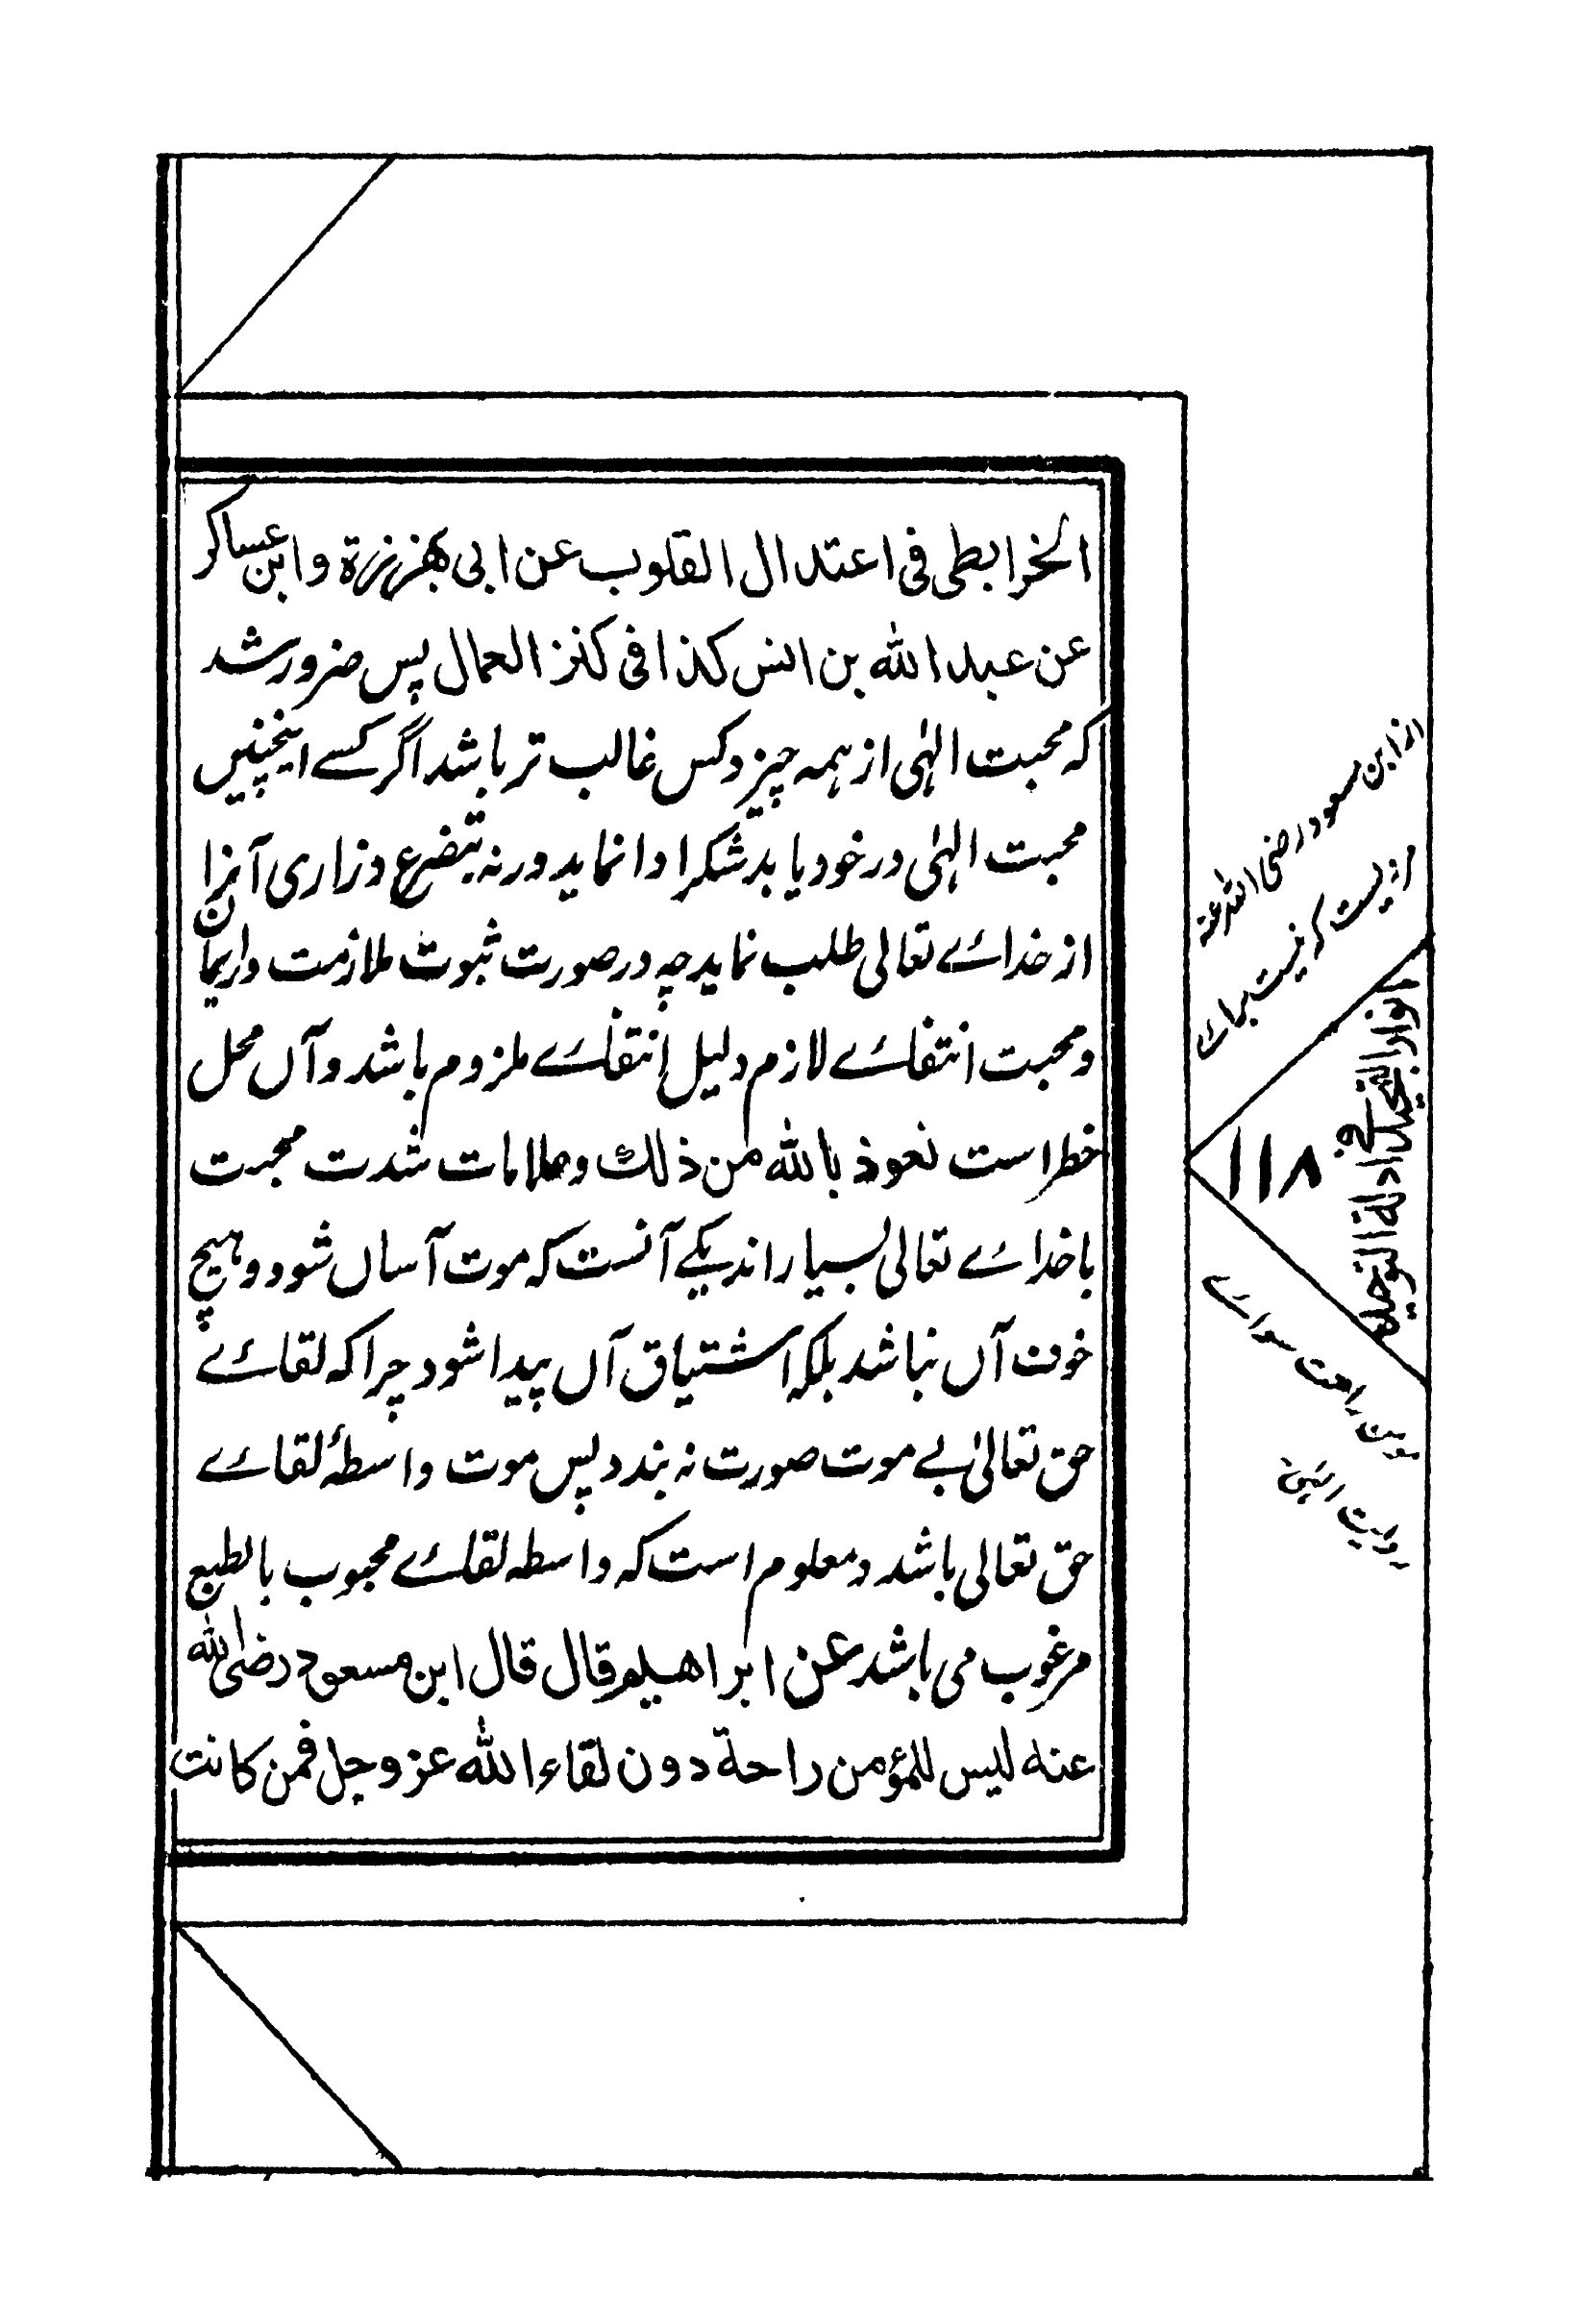 الخرابطی فی اعتدال القلوب عن ابی هریرة وابن عساکر
عن عبد الله بن انس کذا فی کنز العمال پس ضرور شد
که محبت الہٰی از همه چیز و کس غالب تر باشد اگر کسے اینچنیں
محبت الہٰی در خود یابد شکرا وا نماید ورنه بتضرع و زاری آنرا
از خدائے تعالی طلب نماید چه در صورت ثبوت ملازمت در ایمان
و محبت انتفائے لازم دلیل انتفائے ملزوم باشد و آں محل
خطر است نعوذ بالله من ذلك و علامات شدت محبت
با خدائے تعالی بسیار اند یکے آنست که موت آساں شود و هیچ
خوف آں نباشد بلکه اشتیاق آں پیدا شود چرا که لقائے
حق تعالیٰ بے موت صورت نه بندد پس موت واسطۂ لقائے
حق تعالی باشد و معلوم است که واسطه لقائے محبوب بالطبع
مرغوب می باشد عن ابراهیم قال قال ابن مسعود رضی الله
عنه لیس للمؤمن راحة دون لقاء الله عز وجل فمن کانت
از ابن مسعود رضی الله عنه
مرویست که نیست برائے
انوار التمحید فی ادلة التوحید
١١٨
مومن راحت سوائے